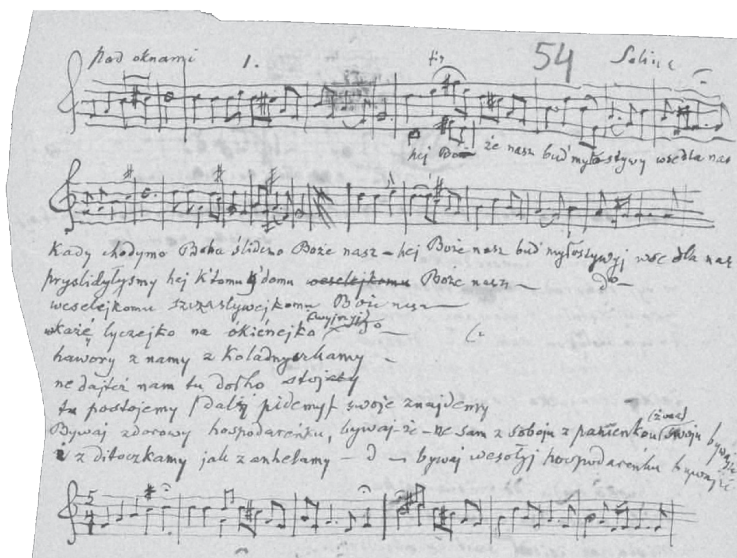 pod oknami 1. 54 Solina
hej Boże nasz bud' myłostywy wse dla nas
Kady chodymo Boha ślidczno Boże nasz – hej Boże nasz bud' myłostywyj wse dla nas
pryslidyłyśmy hej k'tomu domu Boże nasz
weselejkomu szczastywejkomu Boże nasz
łyczejko na okienejko
hawory z namy z Koladnyczkamy –
ne dajteż nam tu dołho stojaty
tu postojemy dalij pidemy swoje znajdemy
Bywaj zdorowy hospodareńku, bywaj-że – ne sam z soboju z panienkou swoju bywajże
i z ditoczkamy jak z anhełamy – d – bywaj wesołyj hospodareńku bywajże
5
4